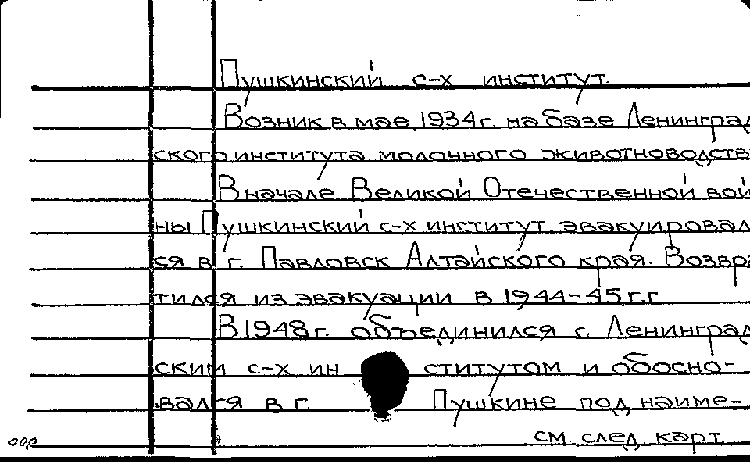 Пушкинский с-х институт.
Возник в мае 1934г. на базе Ленинград
ского института молочного животноводств
В начале Великой Отечественной вой
ны Пушкинский с-х институт эвакуировал
ся в г. Павловск Алтайского края. Возвра
тился из эвакуации в 1944-45гг
В 1948г. объединился с Ленинград
ским с-х институтом и обосно-
вался в г. Пушкине под наиме-
см след карт